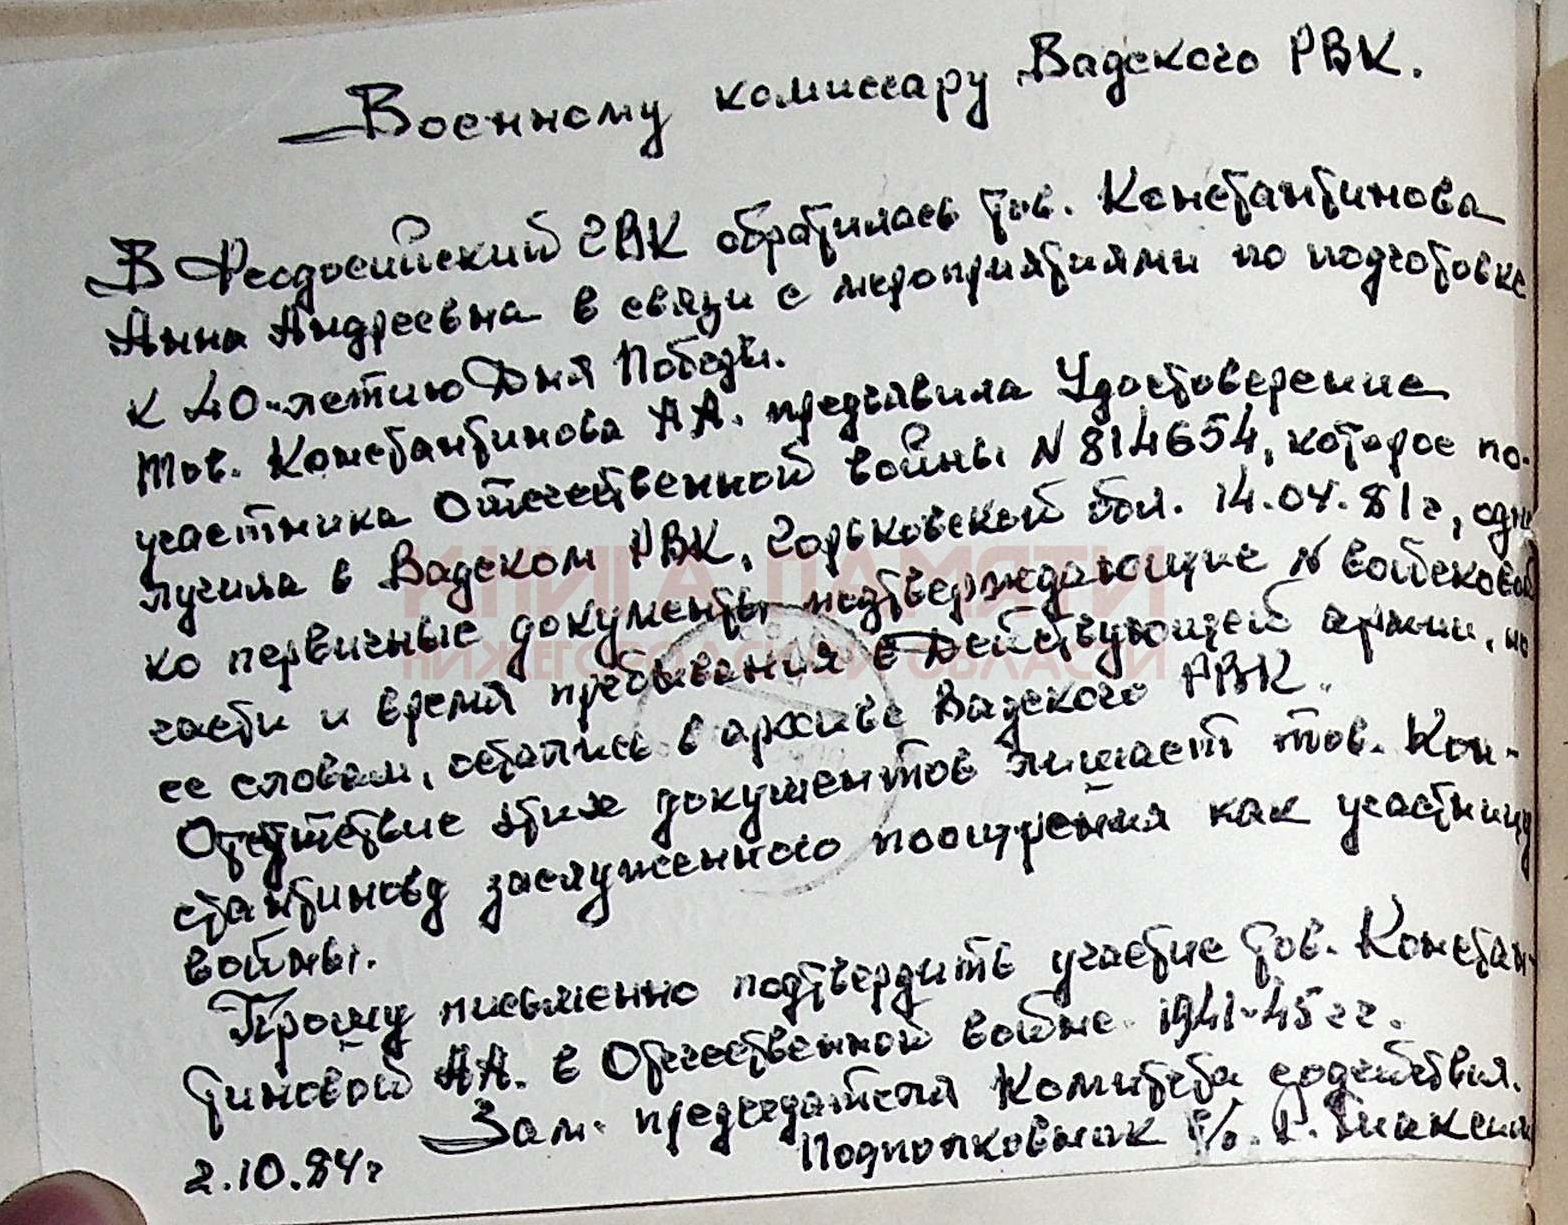 Военному комиссару Вадского РВК.
В Феодосийский ГВК обратилась тов. Константинова
Анна Андреевна в связи с мероприятиями по подготовке
к 40-летию Дня Победы.
Тов. Константинова А А. предъявила Удостоверение
участника Отечественной войны N 814654, которое по-
лучила в Вадском РВК, Горьковской обл. 14.04.81г, одна
ко первичные документы подтверждающие N войсковой
части и время пребывания в Действующей армии, по
ее словам, остались в архиве Вадского РВК.
Отсутствие этих документов лишает тов. Кон-
стантинову заслуженного поощрения как участницу
войны.
Прошу письменно подтвердить участие тов. Констан-
тиновой А А. в Отечественной войне 1941-45гг.
Зам. председателя Комитета содействия.
Подполковник
2.10.84г
КНИГА ПАМЯТИ
НИЖЕГОРОДСКОЙ ОБЛАСТИ